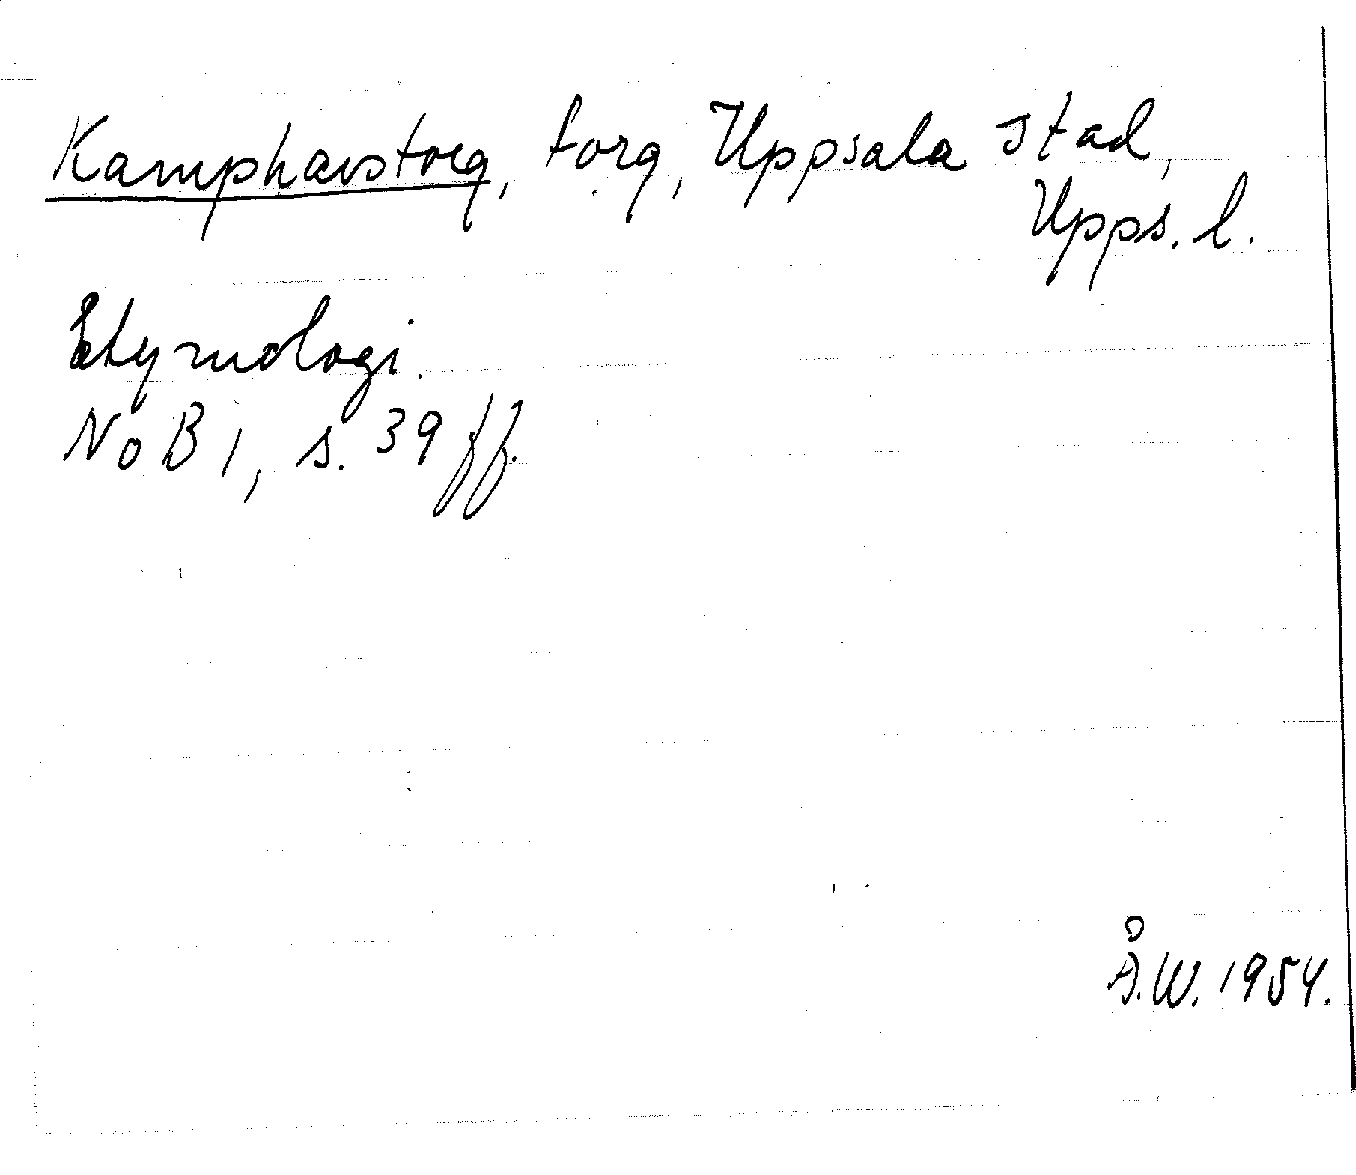 Kamphavstorg, torg, Uppsala stad,
Upps. l.
Etymologi.
NoB 1, s. 39 ff.
Å.W. 1954.